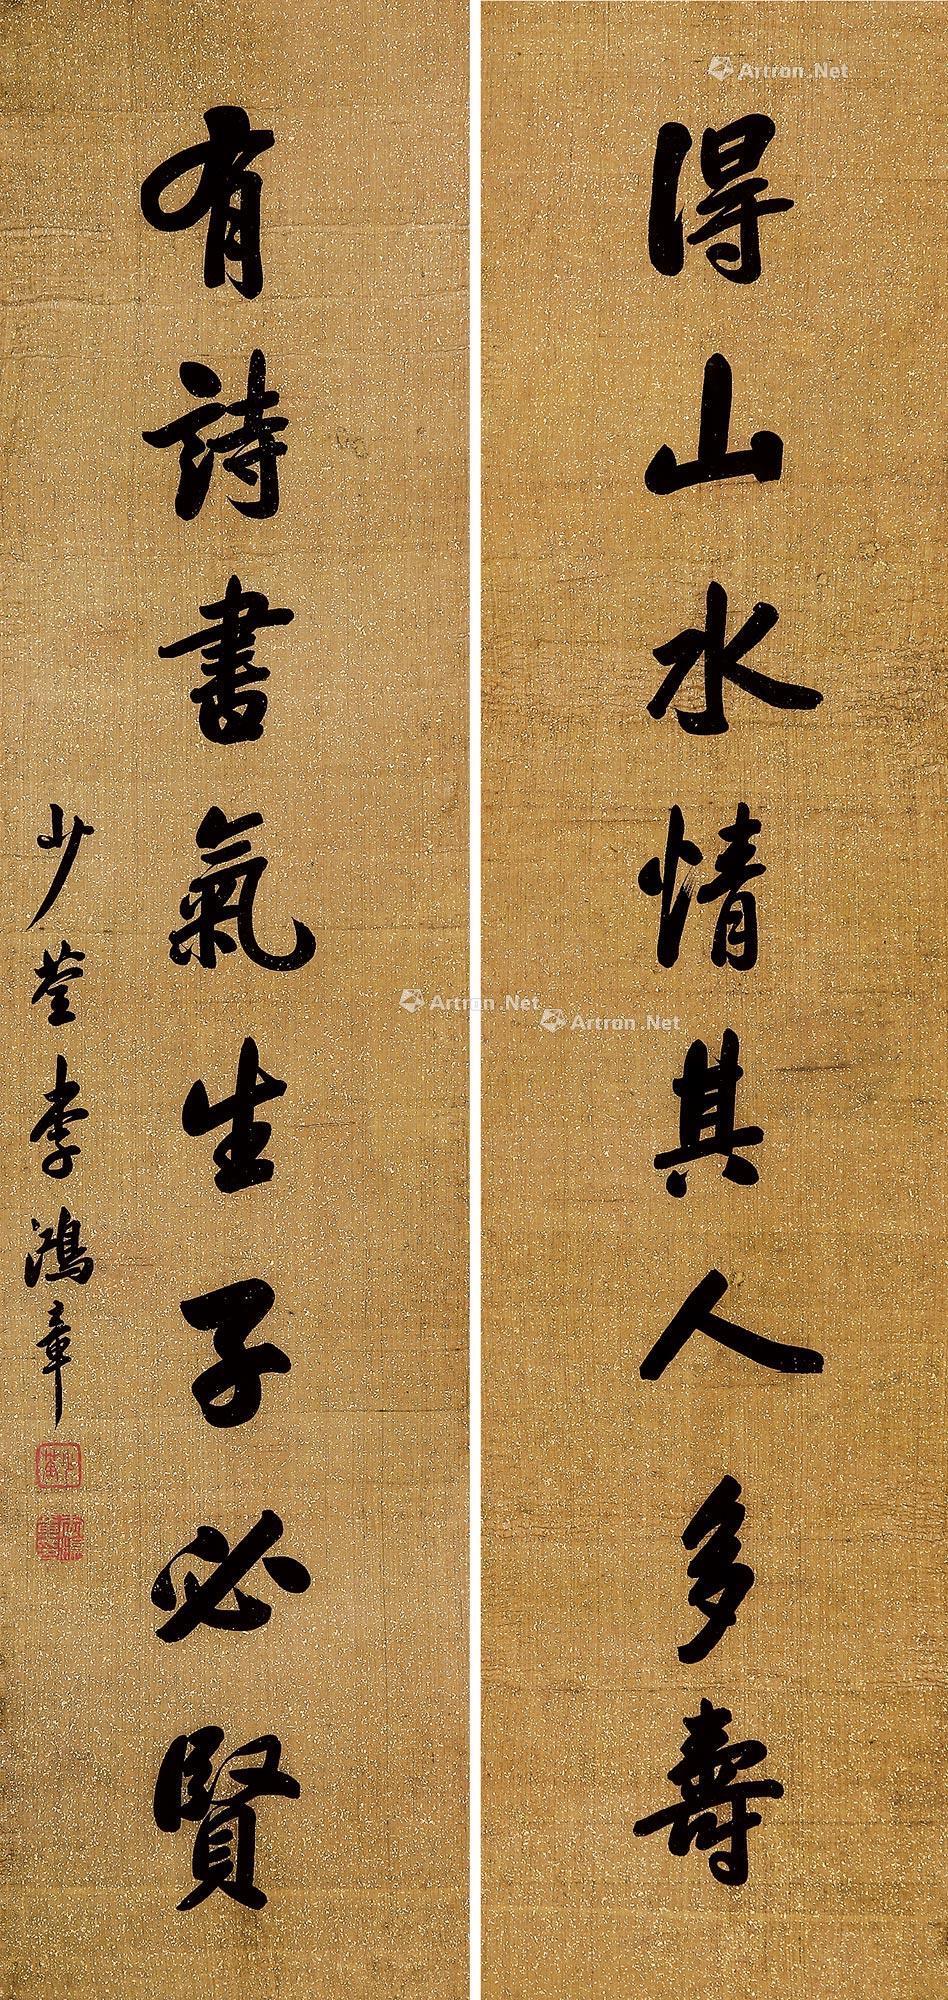 得山水情其人多壽
有詩書氣生子必賢
少荃李鴻章
Artron.Net
Artron.Net
Artron.Net